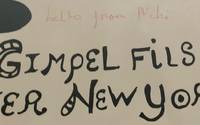 hello from
GIMPEL FILS
ER NEW YOR